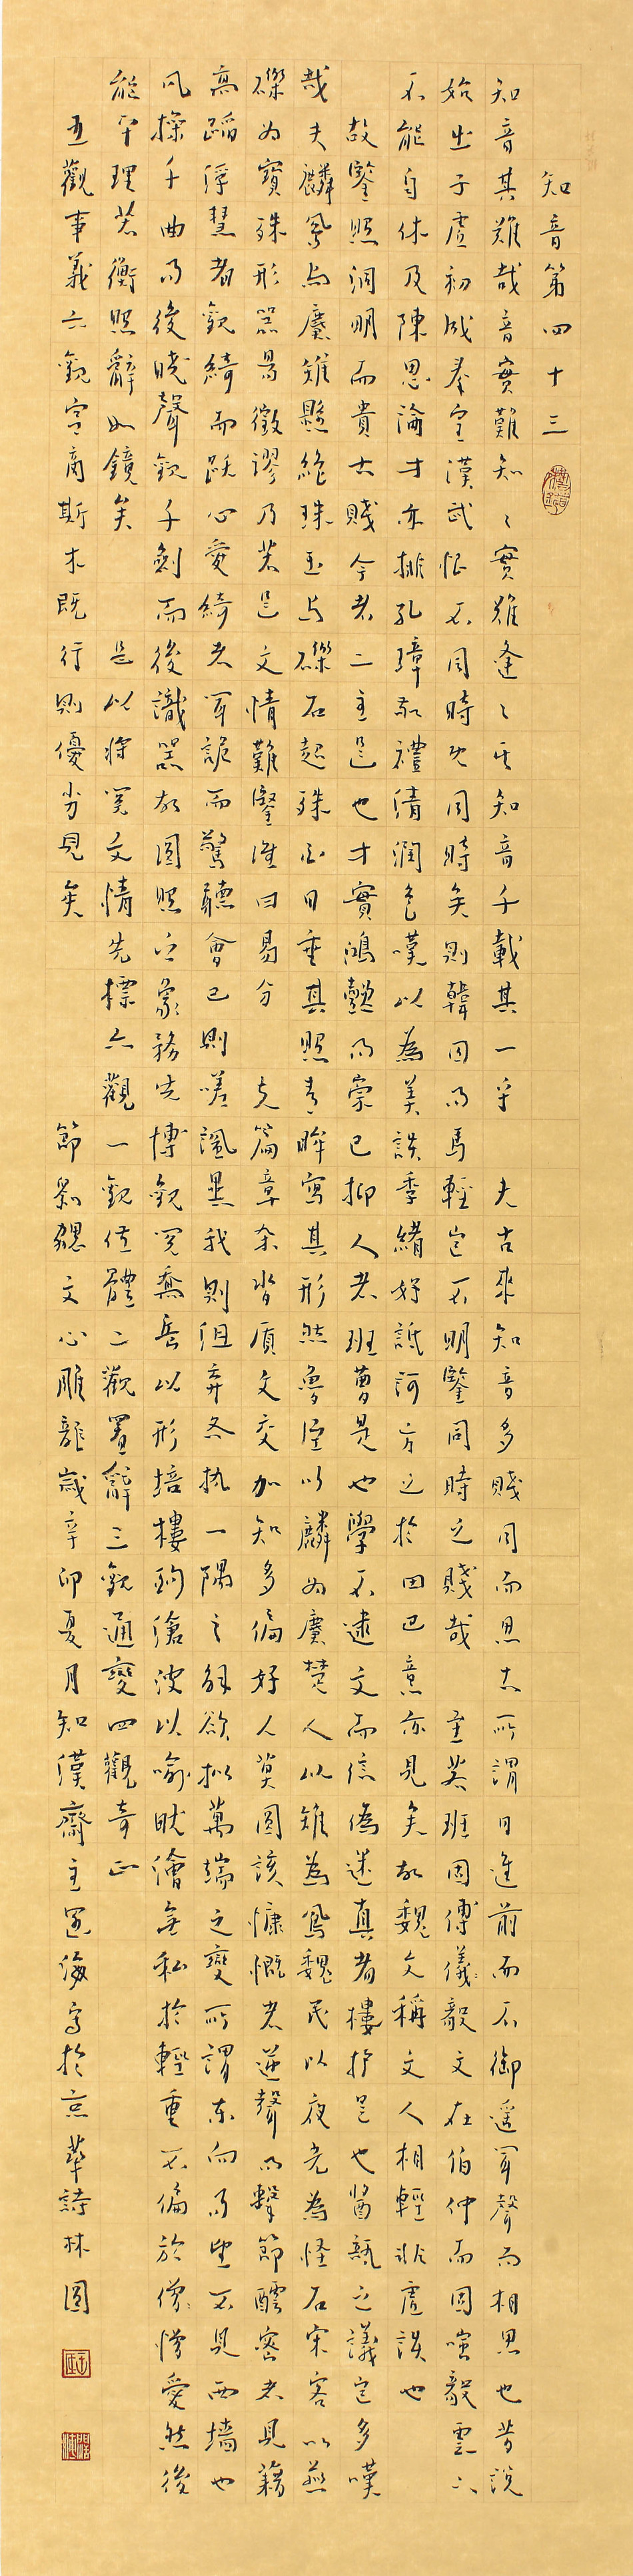 知音第四十三
知音其難哉音實難知々實難逢々其知音千載其一乎 夫古來知音多賤同而思古所謂日進前而不御遙聞聲而相思也昔說
始出子虛初成秦皇漢武恨不同時既同時矣則韓囚而馬輕豈不明鑒同時之賤哉 至若班固傅儀毅文在伯仲而固嗤毅雲下
不能自休及陳思論才亦排孔璋敬禮請潤色嘆以為美談季緒好詆訶方之於田巴意亦見矣故魏文稱文人相輕非虛談也
故鑒照洞明而貴古賤今者二主是也才實鴻懿而崇己抑人者班曹是也學不逮文而信偽迷真者樓护是也醬瓿之議豈多嘆
哉夫麟鳳与麏雉懸絕珠玉与礫石超殊白日垂其照青眸寫其形然魯臣以麟为麏楚人以雉為鳳魏民以夜光為怪石宋客以燕
礫为寶殊形器易徵謬乃若是文情難鑒誰曰易分 夫篇章杂沓質文交加知多偏好人莫圓該慷慨者逆聲而擊節醞密者見籍
高蹈浮慧者觀綺而躍心愛綺者聞詭而驚聽會己則嗟諷異我則沮弃各執一隅之解欲擬萬端之變所謂東向而望不見西墻也
凡操千曲而後曉聲觀千劍而後識器故圓照之象務先博觀閱喬岳以形培塿酌滄波以喻畎澮無私於輕重不偏於僧憎愛然後
能平理若衡照辭如鏡矣 是以將閱文情先標六觀一觀位體二觀置辭三觀通變四觀奇正
五觀事義六觀宮商斯术既行則優劣見矣 節劉勰文心雕龍歲辛卯夏月知漢齋主海写於京華詩林園